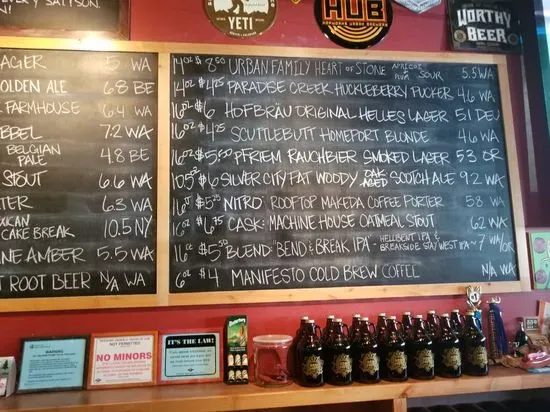 YETI
HUB
HOPWORKS URBAN BREWERY
WORTHY
BEER
AGER 5. WA
OLDEN ALE 6.8 BE
FARMHOUSE 6.4 WA
BBEL 7.2 WA
BELGIAN
PALE 4.8 BE
STOUT 6.6 WA
TER 6.3 WA
XICAN
CAKE BREAK 10.5 NY
NE AMBER 5.5 WA
T ROOT BEER N/A WA
14 OZ $8.50 URBAN FAMILY HEART OF STONE APRICOT PLUM SOUR 5.5 WA
14 OZ $4.25 PARADISE CREEK HUCKLEBERRY PUCKER 4.6 WA
16 OZ $6 HOFBRÄU ORIGINAL HELLES LAGER 5.1 DEU
16 OZ $4.25 SCUTTLEBUTT HOMEPORT BLONDE 4.6 WA
16 OZ PFRIEM RAUCHBIER SMOKED LAGER 5.3 OR
10.5 OZ $6 SILVER CITY FAT WOODY OAK AGED SCOTCH ALE 9.2 WA
16 OZ NITRO: ROOFTOP MAKEDA COFFEE PORTER 5.8 WA
16 OZ $6.75 CASK: MACHINE HOUSE OATMEAL STOUT 6.2 WA
16 OZ $5.50 BLEND "BEND & BREAK IPA" - HELLBENT IPA & BREAKSIDE STAY WEST IPA ~7 WA/OR
6 OZ $4 MANIFESTO COLD BREW COFFEE N/A WA
WARNING
NOT PERMITTED
NO MINORS
IT'S THE LAW!